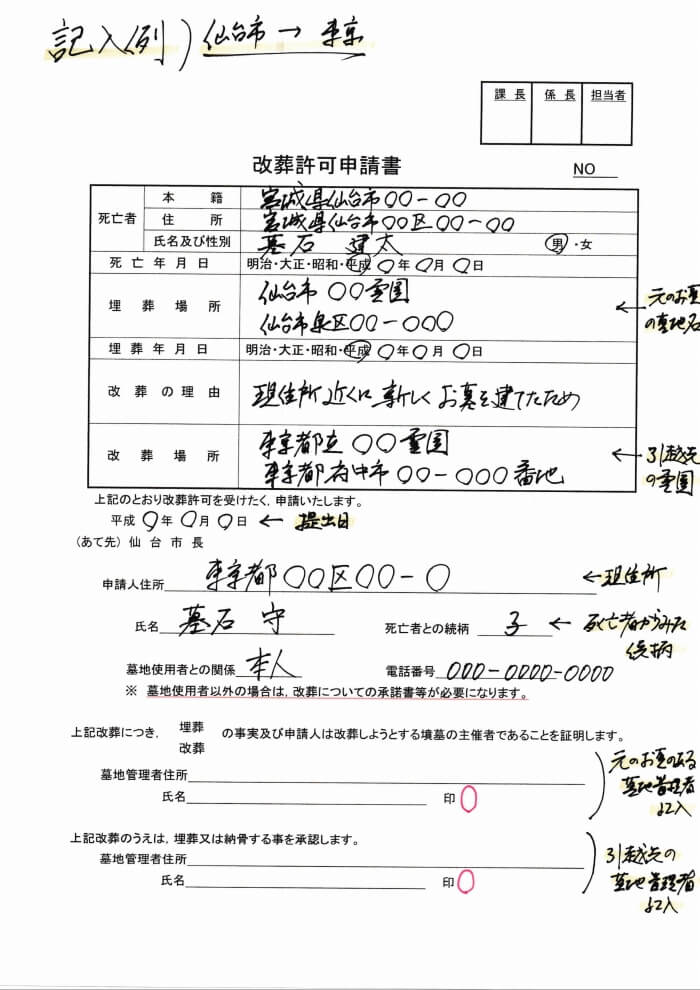 記入例) 仙台市 → 東京
課長 係長 担当者
改葬許可申請書
NO
死亡者 本籍 宮城県仙台市〇〇-〇〇
住所 宮城県仙台市〇〇区〇〇-〇〇
氏名及び性別 墓石 建太 男・女
死亡年月日 明治・大正・昭和・平成 〇年〇月〇日
埋葬場所 仙台市 〇〇霊園
仙台市泉区〇〇-〇〇〇
← 元のお墓
の墓地名
埋葬年月日 明治・大正・昭和・平成 〇年〇月〇日
改葬の理由 現住所近くに新しくお墓を建てたため
改葬場所 東京都立 〇〇霊園
東京都府中市〇〇-〇〇〇番地
← 引越先
の霊園
上記のとおり改葬許可を受けたく,申請いたします。
平成 〇年〇月〇日 ← 提出日
(あて先) 仙台市長
申請人住所 東京都〇〇区〇〇-〇 ← 現住所
氏名 墓石 守 死亡者との続柄 子 ← 死亡者からみた
続柄
墓地使用者との関係 本人 電話番号 000-0000-0000
※ 墓地使用者以外の場合は,改葬についての承諾書等が必要になります。
上記改葬につき, 埋葬 改葬 の事実及び申請人は改葬しようとする墳墓の主催者であることを証明します。
墓地管理者住所
氏名 印
元のお墓のある
墓地管理者
記入
上記改葬のうえは,埋葬又は納骨する事を承認します。
墓地管理者住所
氏名 印
引越先の
墓地管理者
記入